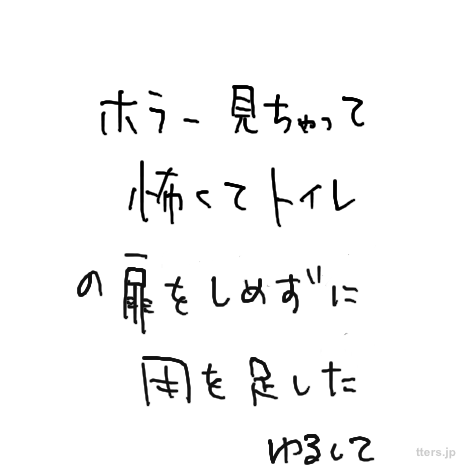 ホラー見ちゃって
怖くてトイレ
の扉をしめずに
用を足した
ゆるして
tters.jp